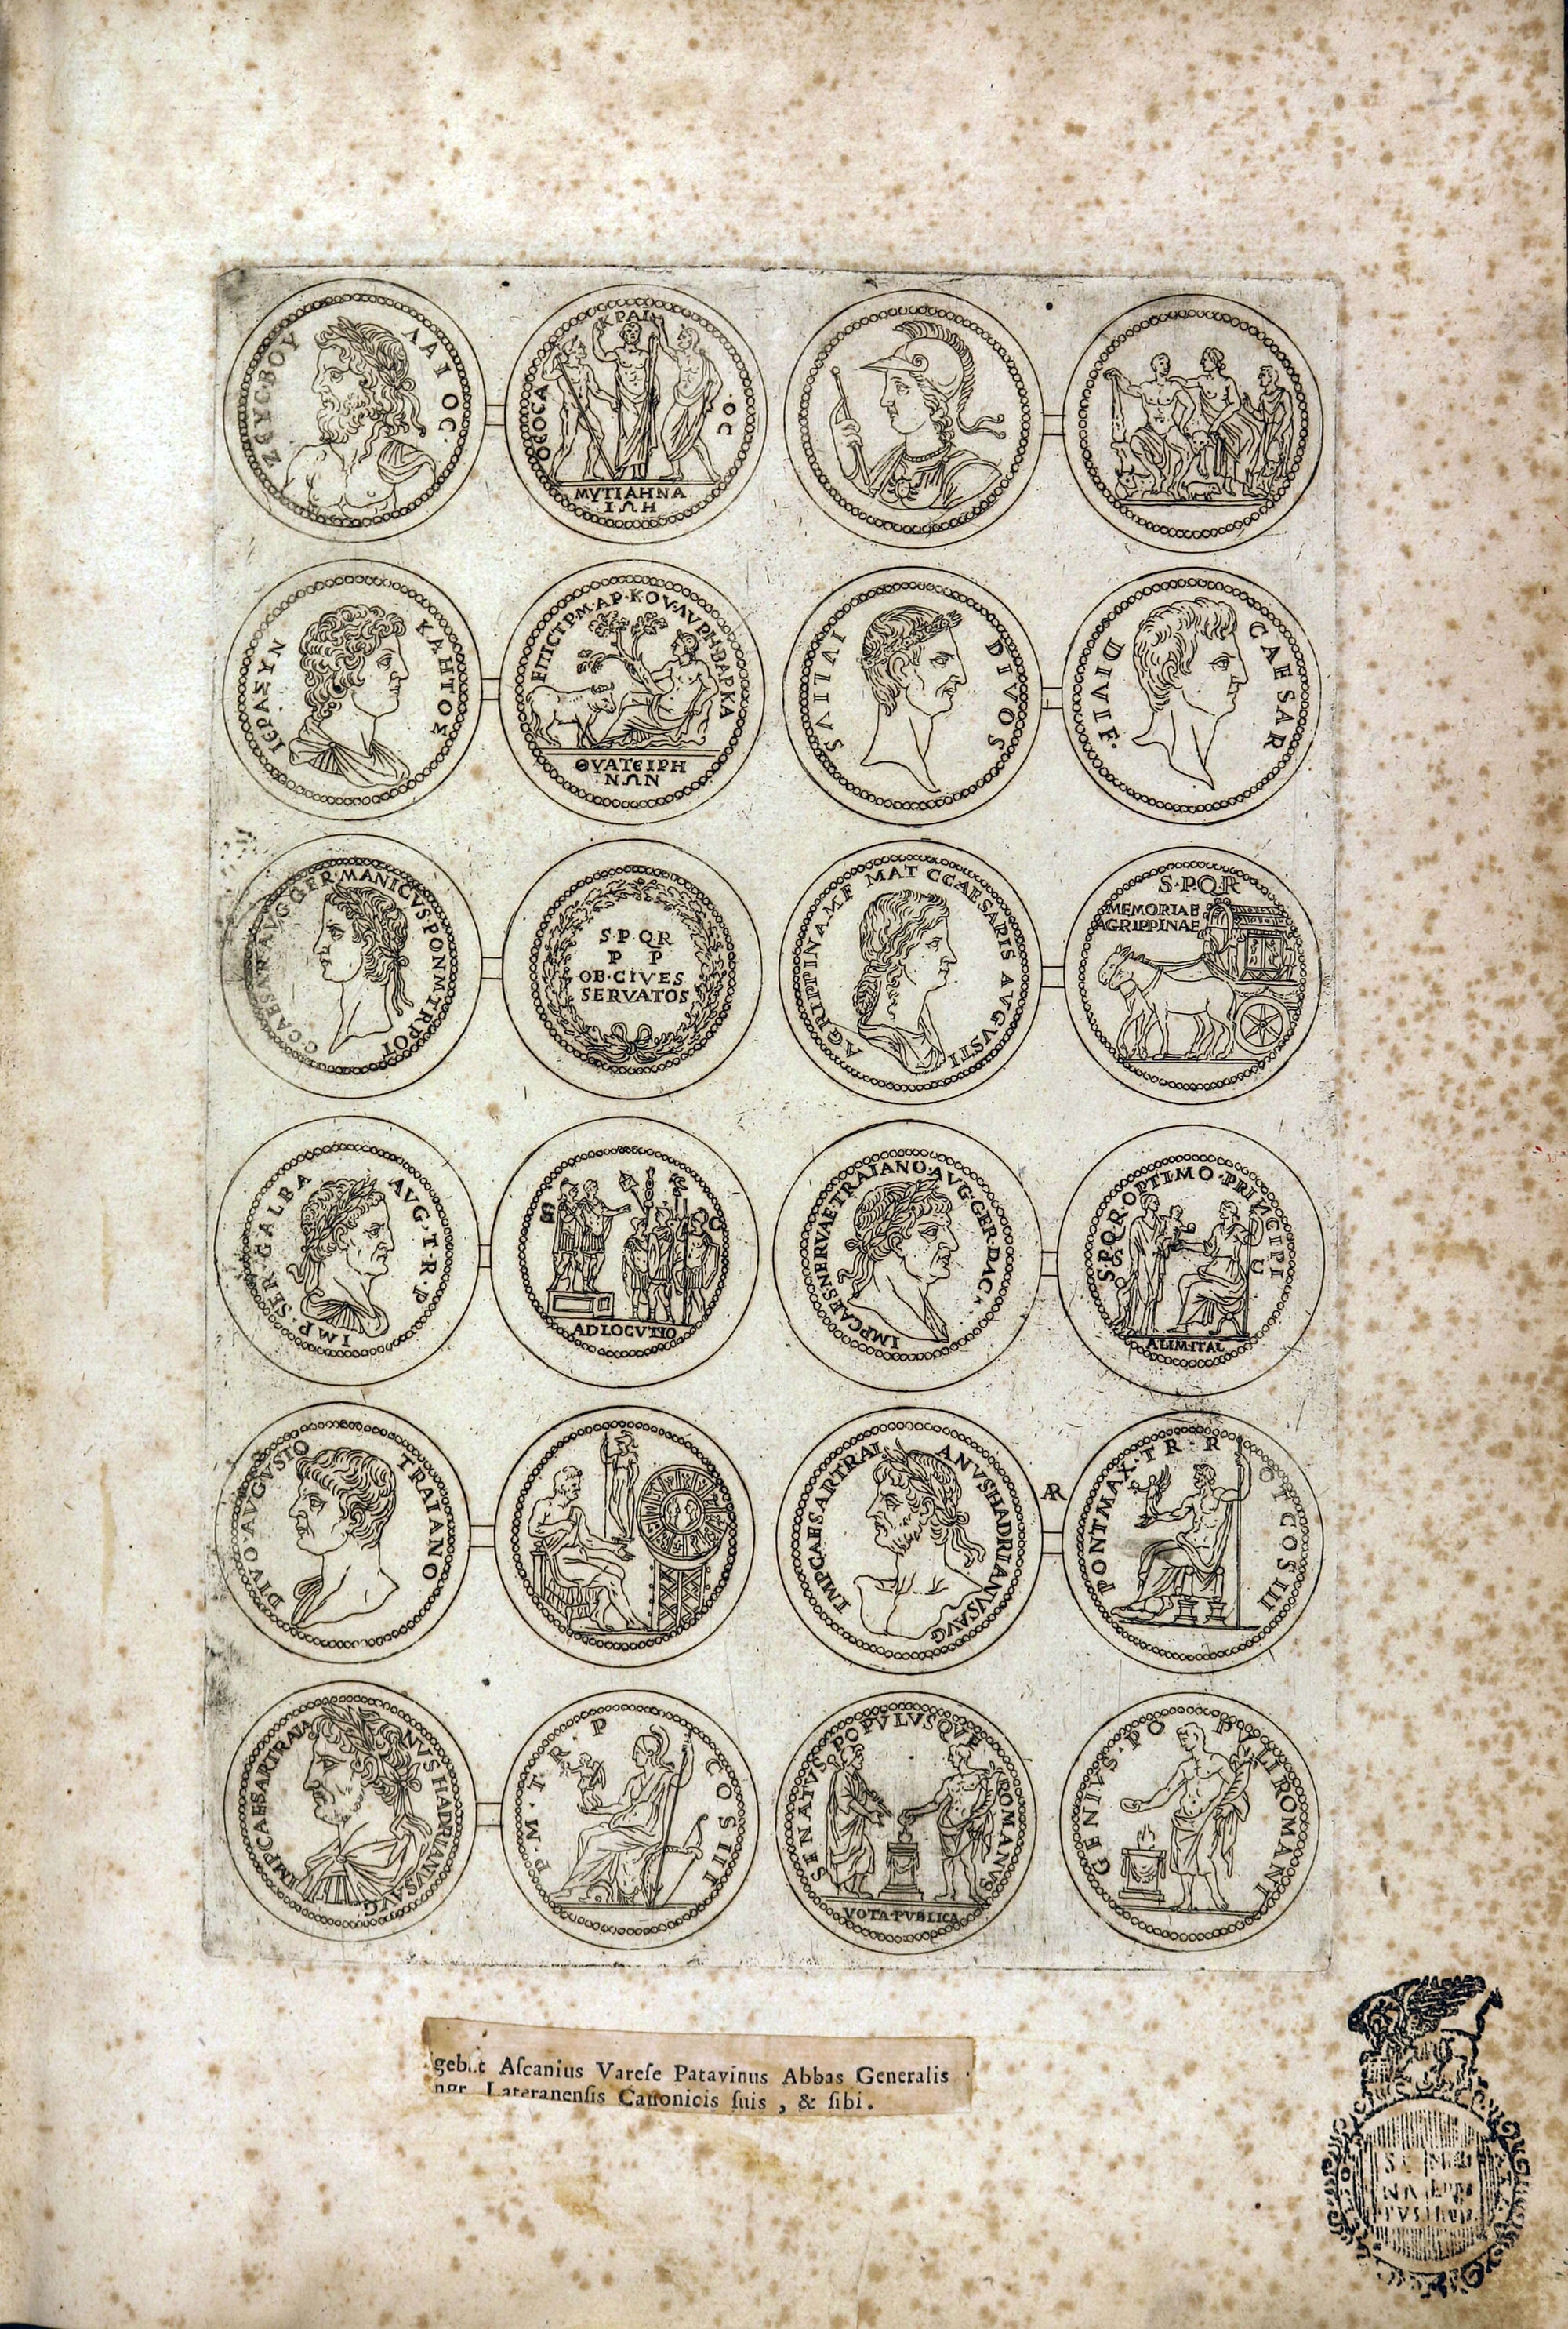 ΖΕΥC·ΒΟΥ ΛΑΙΟC·
ΘΕΟCΑ ΚΡΑΙ ·ΟC
ΜΥΤΙΛΗΝΑ
ΙΩΗ
ΙΕΡΑΣΥΝ ΚΛΗΤΟΣ
ΕΠΙCΤΡ·Μ·ΑΡ·ΚΟΥ·ΑΥΡΗ·ΒΑΡΚΑ
ΘΥΑΤΕΙΡΗ
ΝΩΝ
DIVOS IVLIVS
CAESAR DIVI·F·
C·CAESAR·AVG·GER·MANICVS·PON·M·TR·POT
S·P·Q·R
P P
OB·CIVES
SERVATOS
AGRIPPINA M F MAT C CAESARIS AVGVSTI
S·P·Q·R
MEMORIAE
AGRIPPINAE
IMP·SER·GALBA AVG·T·R·P
S C
ADLOCVTIO
IMP CAES NERVAE TRAIANO·AVG·GER·DAC
S·P·Q·R·OPTIMO·PRINCIPI
S C
ALIM·ITAL
DIVO·AVGVSTO TRAIANO
IMP CAESAR TRAIANVS HADRIANVS AVG
AR
PONT MAX·TR·R OT COS III
IMP CAESAR TRAIANVS HADRIANVS AVG
P·M·T·R·P COS III
SENATVS POPVLVSQVE ROMANVS
VOTA·PVBLICA
GENIVS·PO PVLI ROMANI
gebat Aſcanius Vareſe Patavinus Abbas Generalis
ngr. Lateranenſis Canonicis ſuis, & ſibi.